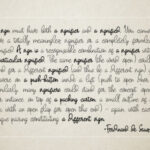 sign must have both a signifier and a signified. You cannot have
a totally meaningless signifier or a completely formless
signified. A sign is a recognisable combination of a signifier with a
particular signified. The same signifier (the word 'open') could
stand for a different signified (and thus be a different sign) if
were on a push-button inside a lift ('push to open door').
Similarly, many signifiers could stand for the concept 'open'
for instance, on top of a packing carton, a small outline of a
box with an open flap for 'open this end') - again with each
unique pairing constituting a different sign.
Ferdinand de Sau